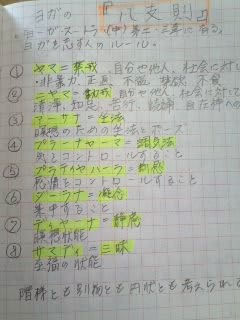 ヨガの『八支則』
ヨーガ・スートラ(中)第二・三章にある、
ヨガを志す人のルール。
① ヤマ=禁戒 自分や他人、社会に対し
・非暴力、正直、不盗、禁欲、不貪
② ニヤマ=勧戒 自分や他人、社会に対して
清浄、知足、苦行、読誦、自在神への
③ アーサナ=坐法
瞑想のための坐法とポーズ
④ プラーナヤーマ=調気法
気をコントロールすること
⑤ プラティヤハーラ=制感
感情をコントロールすること
⑥ ダーラナ=凝念
集中すること
⑦ ディヤーナ=静慮
瞑想状態
⑧ サマディ=三昧
至福の状態
階梯とも別物とも円状とも考えられて